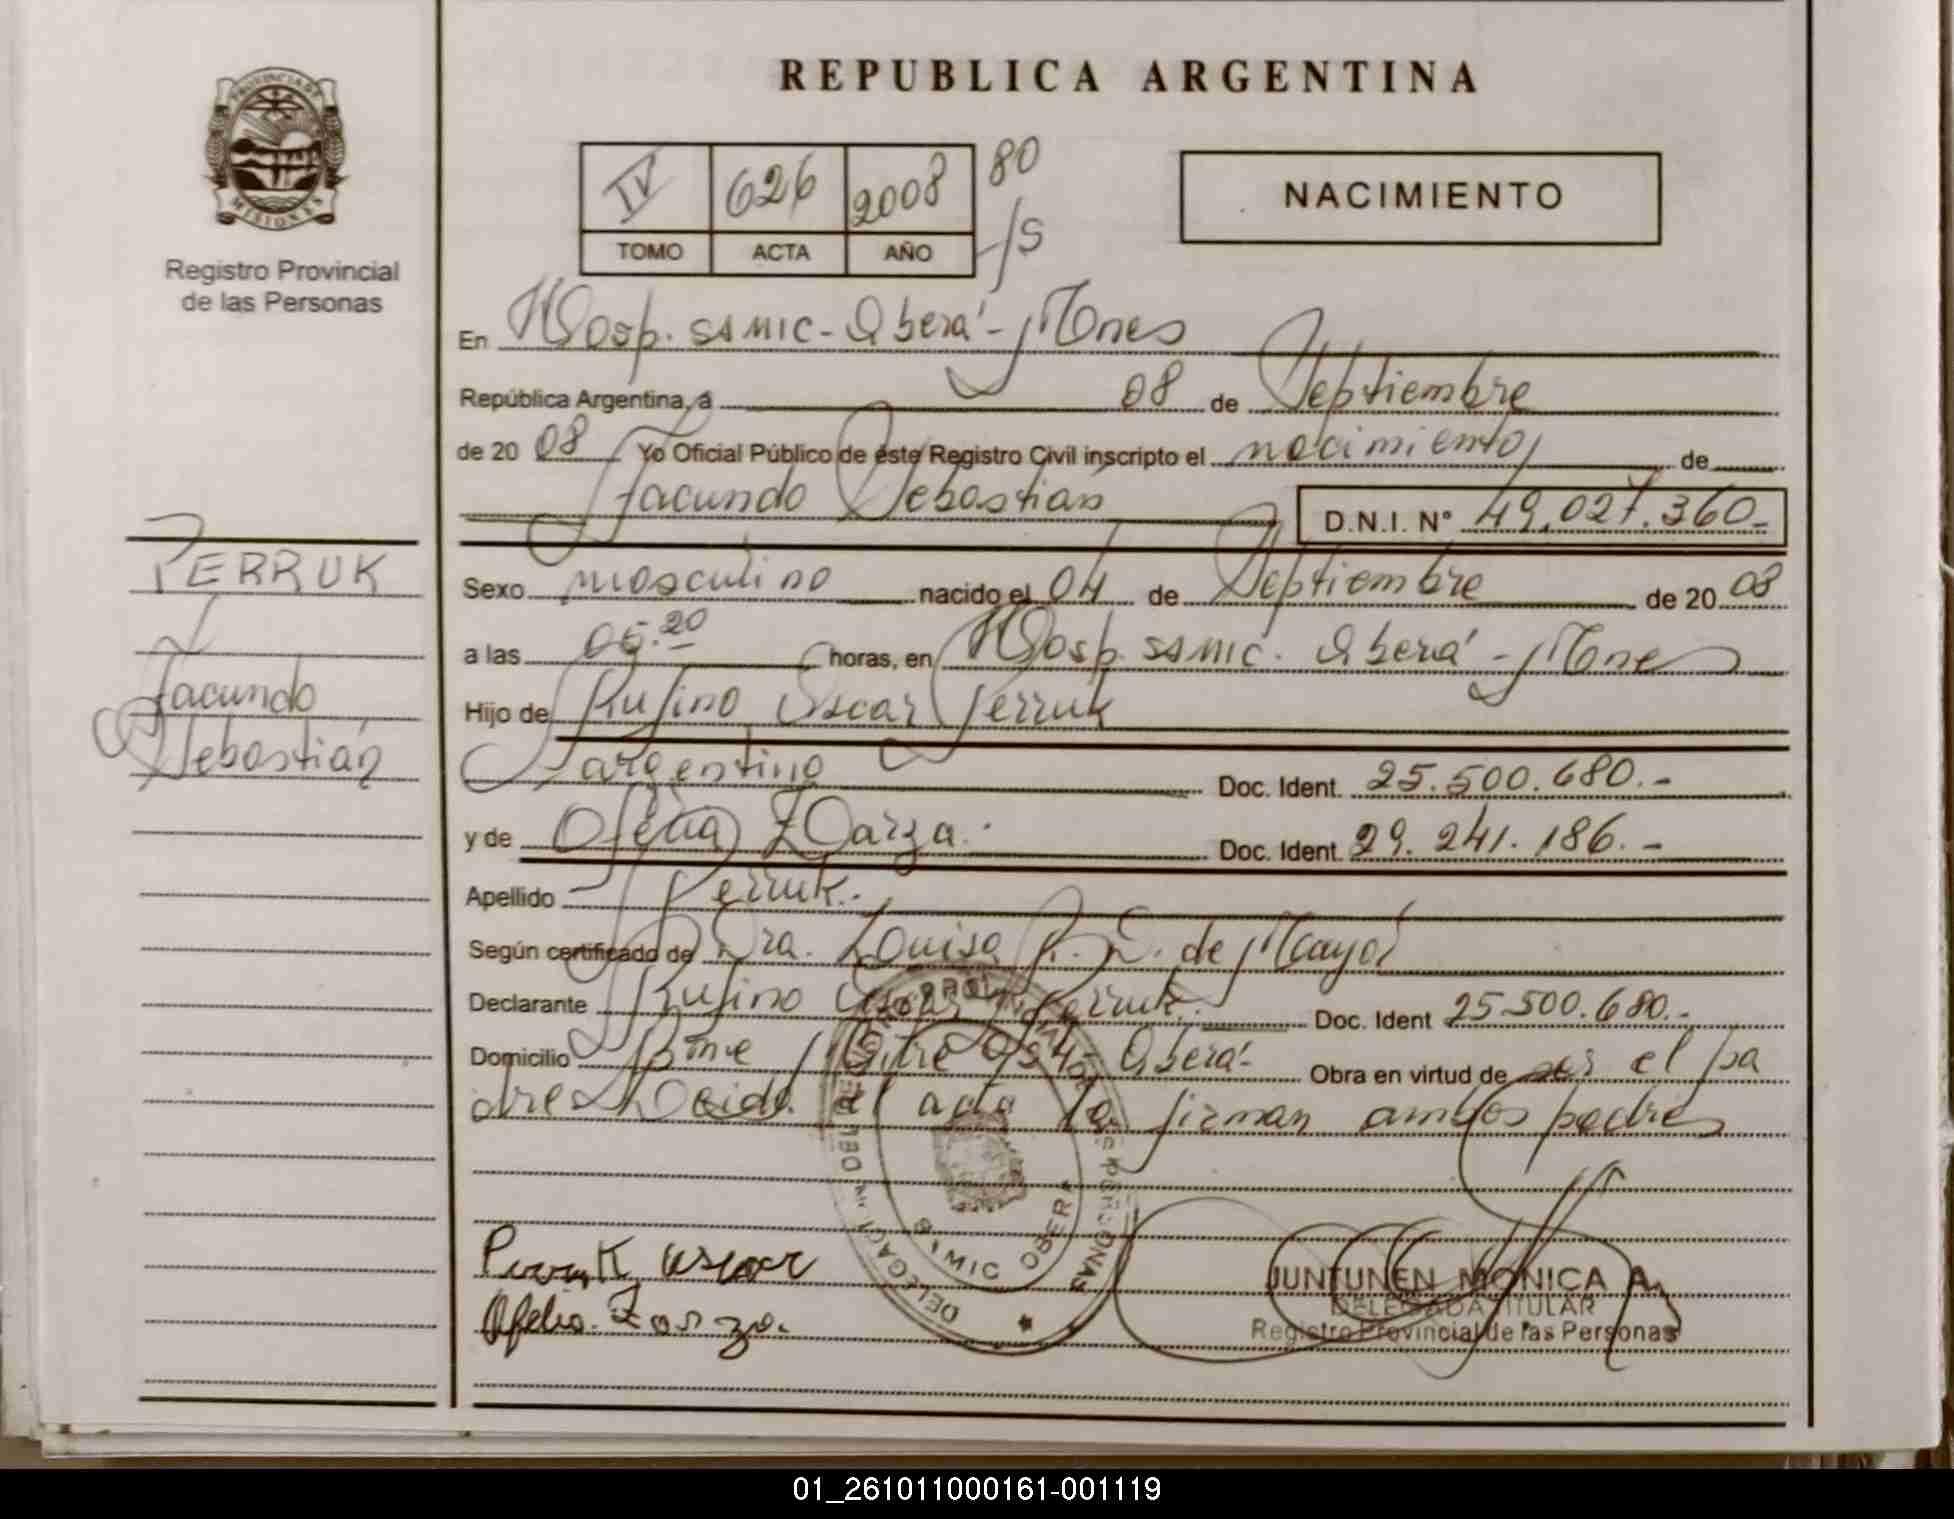 REPUBLICA ARGENTINA
PROVINCIA DE
MISIONES
Registro Provincial
de las Personas
IV 626 2008 80
TOMO ACTA AÑO /S
NACIMIENTO
En Hosp. SAMIC - Oberá - Mnes
República Argentina, a 08 de Septiembre
de 20 08 Yo Oficial Público de este Registro Civil inscripto el nacimiento, de
Facundo Sebastian D.N.I. N° 49.027.360-
PERRUK
Facundo
Sebastián
Sexo masculino nacido el 04 de Septiembre de 20 08
a las 06.20 horas, en Hosp. SAMIC. Oberá - Mnes
Hijo de Rufino Oscar Perruk
argentino Doc. Ident. 25.500.680.-
y de Ofelia Zarza. Doc. Ident. 29.241.186.-
Apellido Perruk.-
Según certificado de Dra. Louisa de Mayol
Declarante Rufino Oscar Perruk.- Doc. Ident 25.500.680.-
Domicilio Bme Mitre Oberá- Obra en virtud de ser el pa
dre Leida el acta la firman ambos padres
Perruk Oscar
Ofelia Zarza.
DELEGACION
SAMIC OBERA
PERSONAS
JUNTUNEN MONICA A.
DELEGADA TITULAR
Registro Provincial de las Personas
01_261011000161-001119